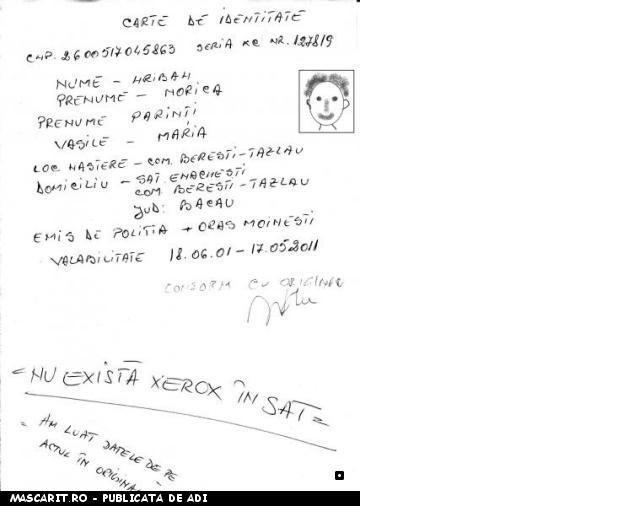 CARTE DE IDENTITATE
CNP. 2600517045863 SERIA XC NR. 127819
NUME - HRIBAN
PRENUME - NORICA
PRENUME PARINTI
VASILE - MARIA
LOC NASTERE - COM. BERESTI-TAZLAU
DOMICILIU - SAT. ENACHESTI
COM. BERESTI - TAZLAU
JUD: BACAU
EMIS DE POLITIA ORAS MOINESTI
VALABILITATE 18.06.01 - 17.05 2011
CONFORM CU ORIGINAL
= NU EXISTĂ XEROX ÎN SAT =
= AM LUAT DATELE DE PE
ACTUL ÎN ORIGINAL
MASCARIT.RO - PUBLICATA DE ADI